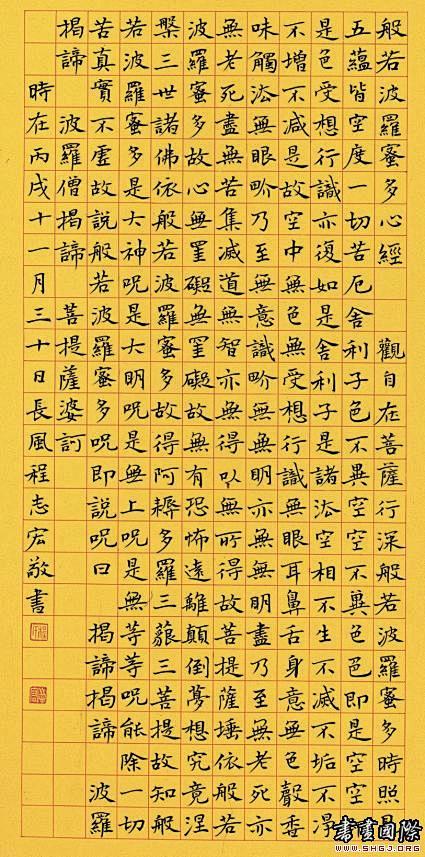 般若波羅蜜多心經 觀自在菩薩行深般若波羅蜜多時照見
五蘊皆空度一切苦厄舍利子色不異空空不異色色即是空空
是色受想行識亦復如是舍利子是諸法空相不生不滅不垢不淨
不增不減是故空中無色無受想行識無眼耳鼻舌身意無色聲香
味觸法無眼界乃至無意識界無無明亦無無明盡乃至無老死亦
無老死盡無苦集滅道無智亦無得以無所得故菩提薩埵依般若
波羅蜜多故心無罣礙無罣礙故無有恐怖遠離顛倒夢想究竟涅
槃三世諸佛依般若波羅蜜多故得阿耨多羅三藐三菩提故知般
若波羅蜜多是大神呪是大明呪是無上呪是無等等呪能除一切
苦真實不虛故說般若波羅蜜多呪即說呪曰 揭諦揭諦 波羅
揭諦 波羅僧揭諦 菩提薩婆訶
時在丙戌十一月三十日長風程志宏敬書
書畫國際
WWW.SHGJ.ORG